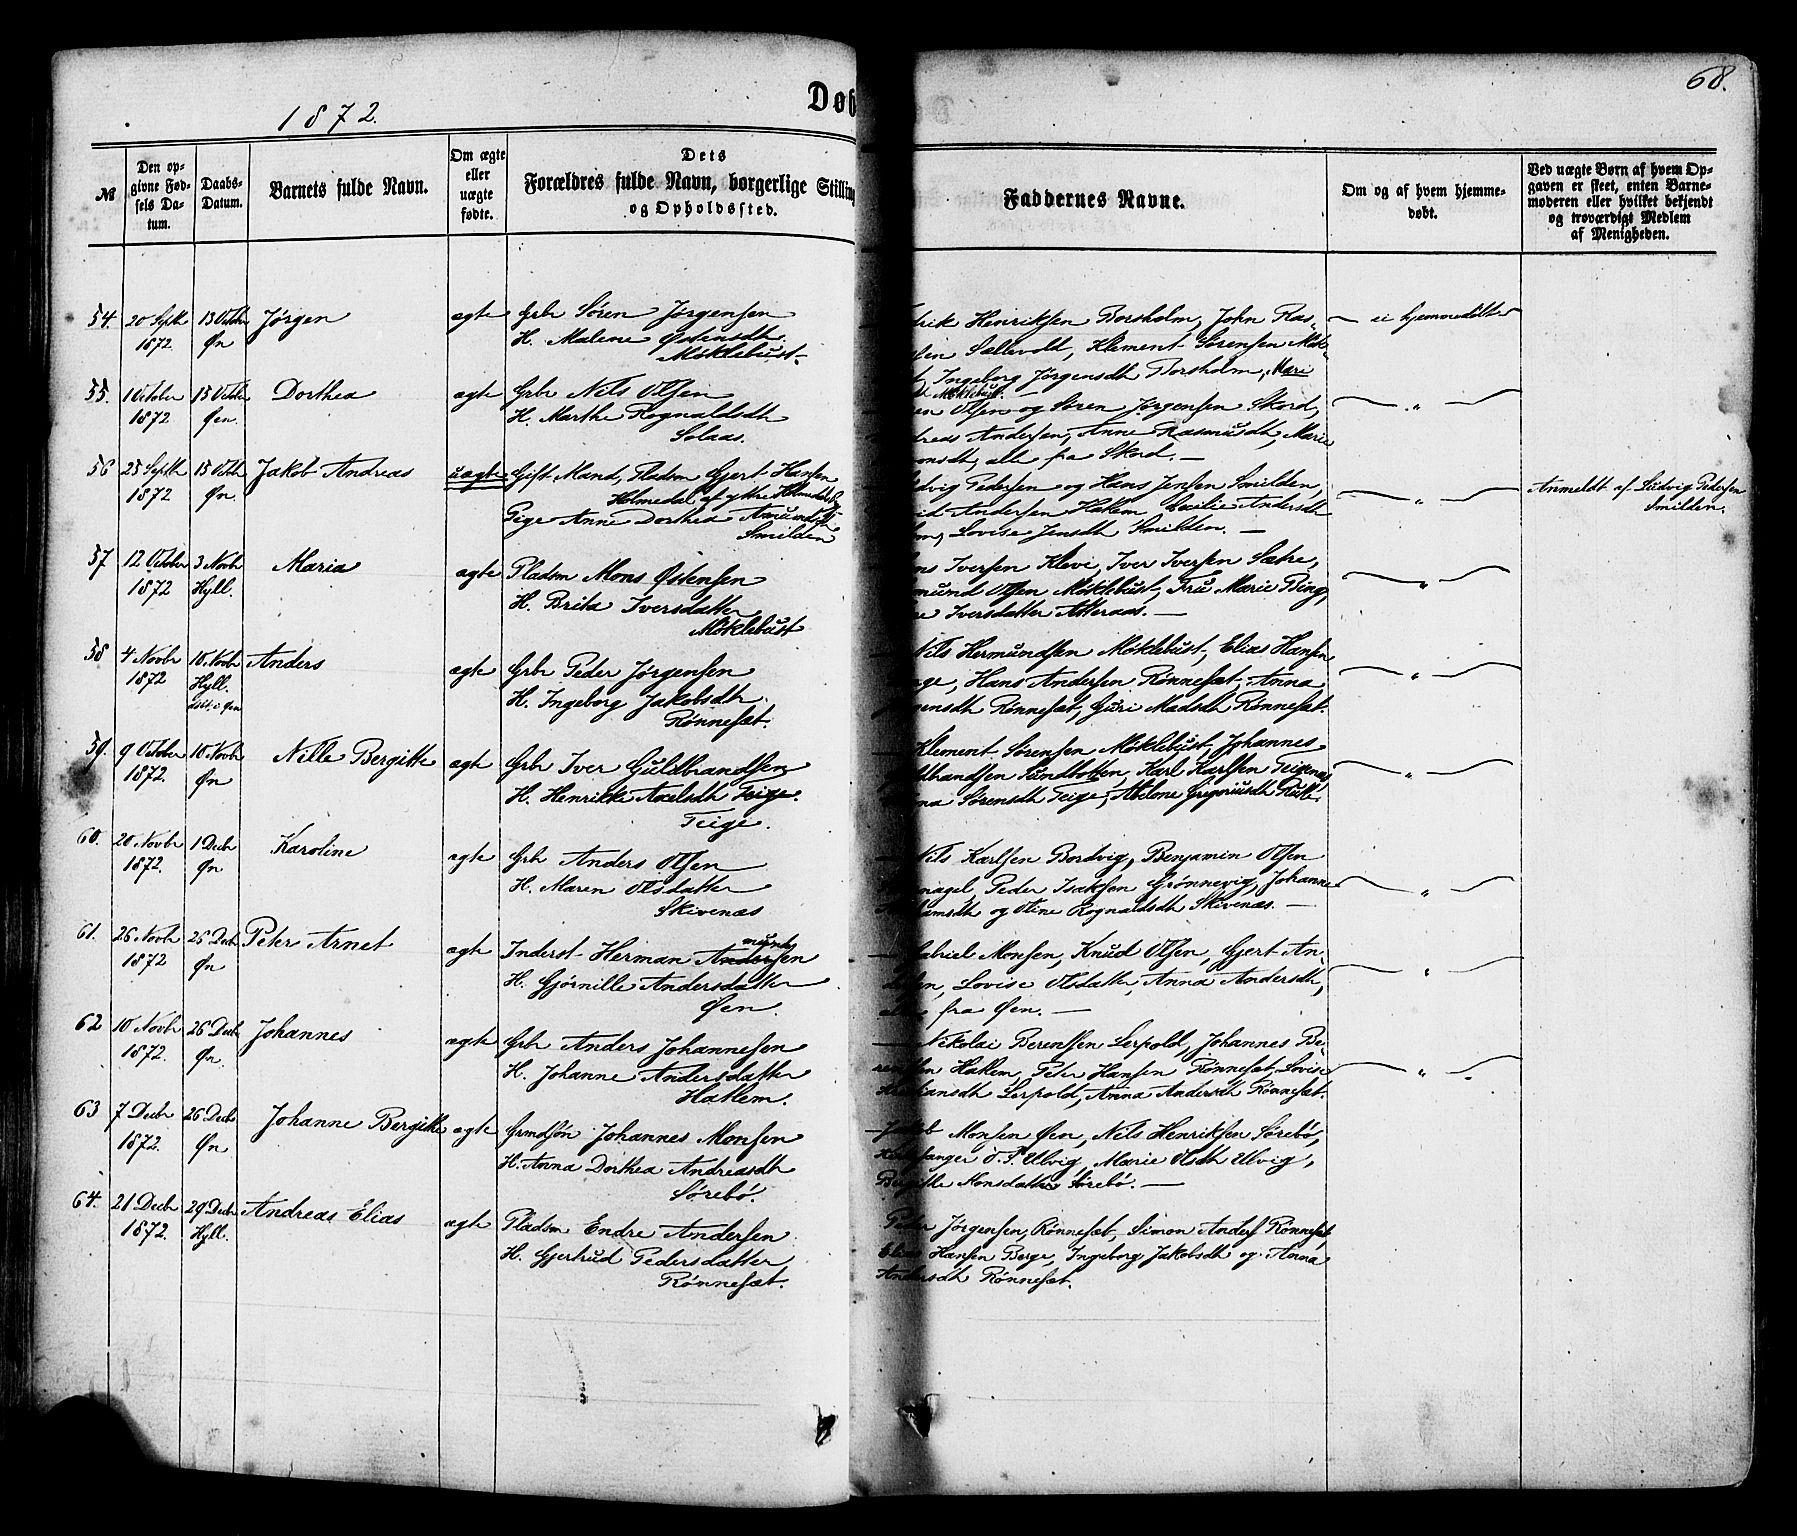 1872.
Døb
68.
№
Den op-
givne Fød-
sels Da-
tum.
Daabs-
Datum.
Barnets fulde Navn.
Om ægte
eller
uægte
fødte.
Dets
Forældres fulde Navn, borgerlige Stilling
og Opholdssted.
Faddernes Navne.
Om og af hvem hjemme-
døbt.
Ved uægte Børn af hvem Op-
gaven er skeet, enten Barne-
moderen eller hvilket bekjendt
og troværdigt Medlem
af Menigheden.
54.
20 Septbr
1872.
13 Octobr
Øn
Jørgen
ægte
Grbr Søren Jørgensen
H. Malene Østensdtr.
Möklebust.
drik Henriksen Borsholm, John Ras-
sen Sellevold, Klement Sørensen Møk-
Ingeborg Jørgensdtr Borsholm, Mari
Möklebust.
ei hjemmedøbt
55.
1 October
1872
13 Octobr
Øen.
Dorthea
ægte
Grbr Nils Olsen
H. Marthe Rognaldsdtr
Solaas.
Olsen og Søren Jørgensen Skord,
dreas Andersen, Anne Rasmusdtr, Marie
alle fra Skord.
"
56
25 Septbr
1872
13 Octbr
Øn.
Jakob Andreas
uægte
Gift Mand, Pladsm Gjert Hansen
Holmedal af yttre Holmedal
Pige Anne Dorthea Amundsdtr
Smilden
dvig Pedersen og Hans Jensen Smilden,
Andersen Hatlem Cecilie Andersdtr
Lovise Jensdtr Smilden.
"
Anmeldt af Ludvig Pedersen
Smilden.
57
12 October
1872
3 Novbr
Hyll.
Maria
ægte
Pladsm Mons Østensen
H. Brita Iversdatter
Möklebust
Iversen Kleve, Iver Iversen Sætre,
mund Olsen Möklebust, Fru Marie Bing,
Iversdatter Atteraas.
"
58
4 Novbr
1872
10 Novbr
Hyll.
Anders
ægte
Grbr Peder Jørgensen
H. Ingeborg Jakobsdtr.
Rønneset.
Nils Hermundsen Möklebust, Elias Hansen
ge, Hans Andersen Rønneset, Anna
gensdtr Rønneset, Guri Madsdtr Rønneset.
"
59.
9 October
1872.
10 Novbr
Øn
Nille Bergitte
ægte
Grbr Iver Guldbrandsen
H. Henrikke Axelsdtr Teige.
Teige.
Klement Sørensen Möklebust, Johannes
ldbrandsen Sundbotten, Karl Karlsen Teigenæs,
na Sørensdtr Teige, Abelone Gregoriusdtr
"
60.
20 Novbr
1872.
1 Decbr
Øn
Karoline
ægte
Grbr Anders Olsen
H. Maren Olsdatter
Skivenæs
Nils Karlsen Bordvig, Benjamin Olsen
nagel, Peder Isaksen Grønnevig, Johanne
amsdtr og Oline Rognaldsdtr Skivenæs.
"
61.
26 Novbr
1872
25 Decbr
Øn
Peter Arnet
ægte
Inderst Herman Andersen
munds
H. Gjørnille Andersdatter
Øen.
Gabriel Monsen, Knud Olsen, Gjert An-
dersen, Lovise Olsdatter, Anna Andersdtr,
alle fra Øen.
"
62
10 Novbr
1872.
26 Decbr
Øn.
Johannes
ægte
Grbr Anders Johannesen
H. Johanne Andersdatter
Hatlem.
Nikolai Berentsen Lerpold, Johannes Be-
rentsen Hatlem, Peter Hansen Rønneset, Lovise
Kristiansdtr Lerpold, Anna Andersdtr Rønneset.
"
63
7 Decbr
1872.
26 Decbr
Øn
Johanne Bergitte
ægte
Grmdsön Johannes Monsen
H. Anna Dorthea Andreasdtr
Sørebö.
Jakob Monsen Øen, Nils Henriksen Sørebö,
Kirkesanger O. P. Ulvig, Marie Olsdtr Ulvig,
Bergitte Monsdatter Sørebö.
64.
21 Decbr
1872.
29 Decbr
Hyll.
Andreas Elias
ægte
Pladsm Endre Andersen
H. Gjertrud Pedersdatter
Rønneset.
Peder Jørgensen, Rønneset, Simon Anders Rønneset,
Elias Hansen Berge, Ingeborg Jakobsdtr og Anna
Andersdtr Rønneset.